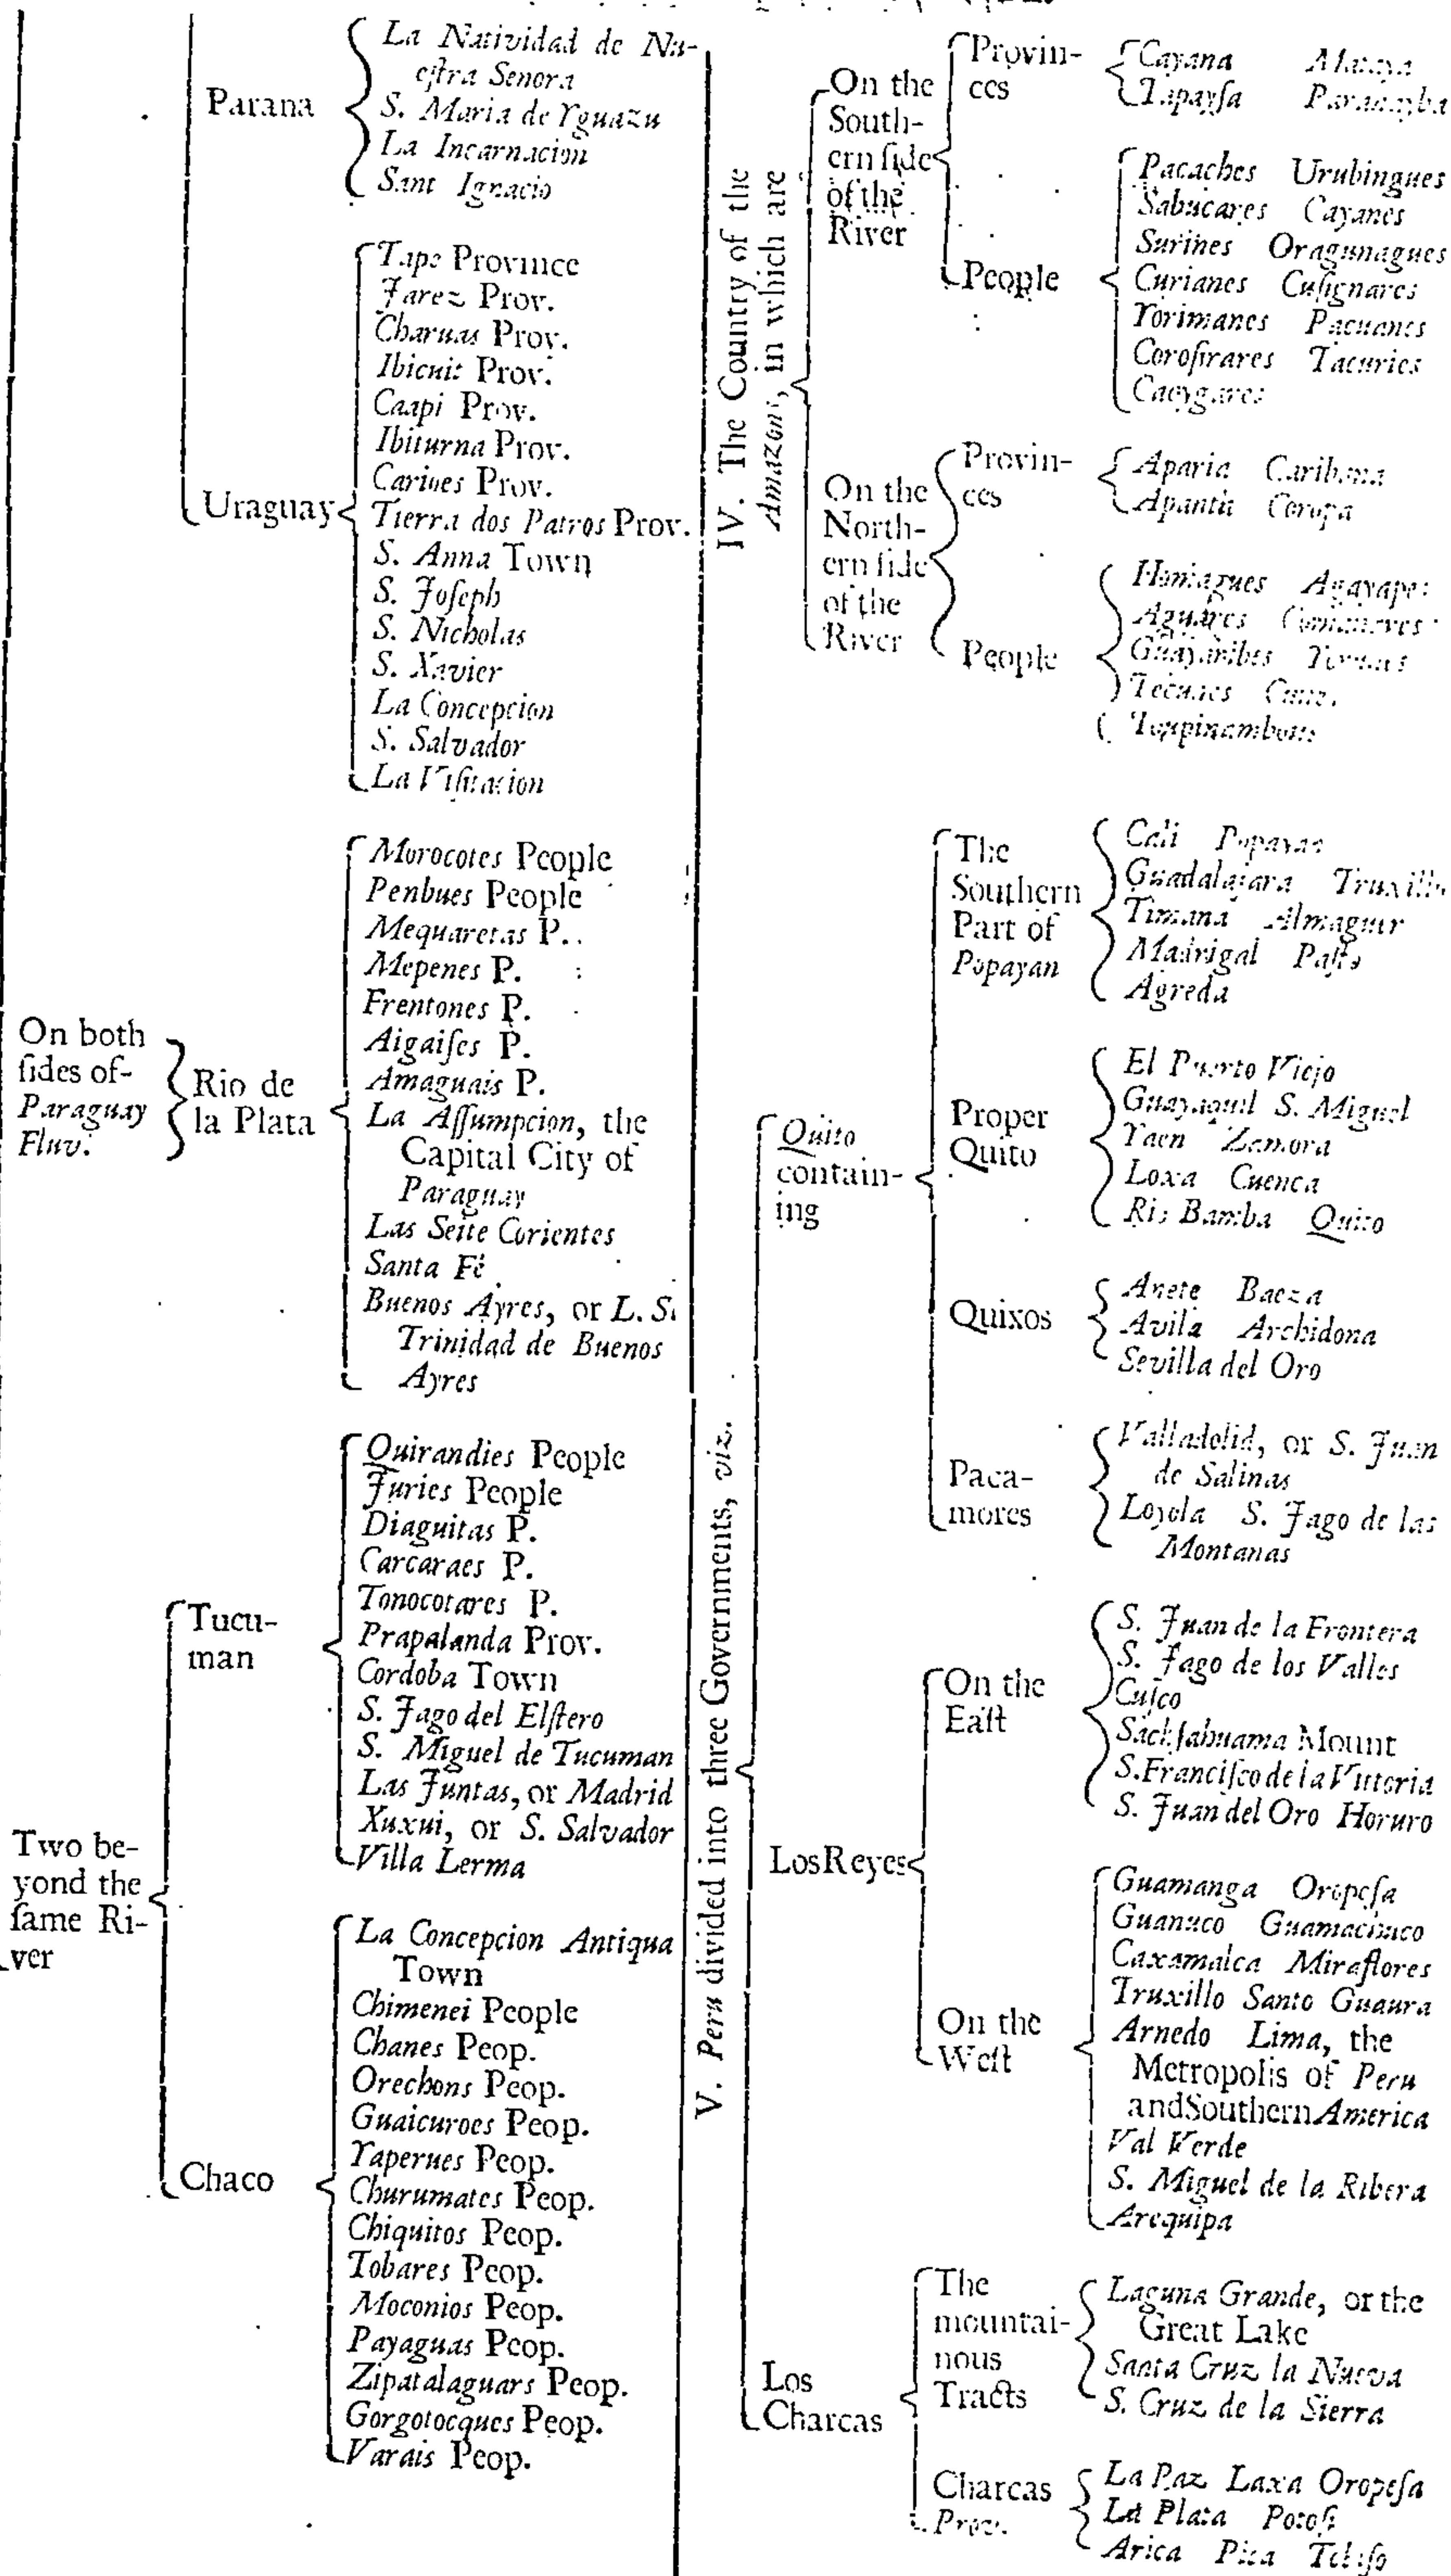 Parana
La Natividad de Nu-
estra Senora
S. Maria de Yguazu
La Incarnacion
Sant Ignacio
Uraguay
Tape Province
Jarez Prov.
Charuas Prov.
Ibicuit Prov.
Caapi Prov.
Ibiturna Prov.
Carioes Prov.
Tierra dos Patros Prov.
S. Anna Town
S. Joſeph
S. Nicholas
S. Xavier
La Concepcion
S. Salvador
La Viſitacion
On both
ſides of-
Paraguay
Fluv.
Rio de
la Plata
Morocotes People
Penbues People
Mequaretas P.
Mepenes P.
Frentones P.
Aigaiſes P.
Amaguais P.
La Aſſumpcion, the
Capital City of
Paraguay
Las Seite Corientes
Santa Fè
Buenos Ayres, or L. S.
Trinidad de Buenos
Ayres
Two be-
yond the
ſame Ri-
ver
Tucu-
man
Quirandies People
Juries People
Diaguitas P.
Carcaraes P.
Tonocotares P.
Prapalanda Prov.
Cordoba Town
S. Jago del Elſtero
S. Miguel de Tucuman
Las Juntas, or Madrid
Xuxui, or S. Salvador
Villa Lerma
Chaco
La Concepcion Antiqua
Town
Chimenei People
Chanes Peop.
Orechons Peop.
Guaicuroes Peop.
Yaperues Peop.
Churumates Peop.
Chiquitos Peop.
Tobares Peop.
Moconios Peop.
Payaguas Peop.
Zipatalaguars Peop.
Gorgotocques Peop.
Varais Peop.
IV. The Country of the
Amazons, in which are
On the
South-
ern ſide
of the
River
Provin-
ces
Cayana
Tapayſa
People
Pacaches Urubingues
Sabucares Cayanes
Surines Oragunagues
Curianes Cuſignares
Yorimanes Pacuanes
Coroſirares Tacuries
Caeygares
On the
North-
ern ſide
of the
River
Provin-
ces
Aparia Caribana
Apantu Coropa
People
Homagues
Aguares
Guayaribes
Tecunes
Toupinambous
V. Peru divided into three Governments, viz.
Quito
contain-
ing
The
Southern
Part of
Popayan
Cali Popayan
Guadalajara Truxillo
Timana Almaguer
Madrigal Paſto
Agreda
Proper
Quito
El Puerto Viejo
Guayaquil S. Miguel
Yaen Zamora
Loxa Cuenca
Rio Bamba Quito
Quixos
Anete Baeza
Avila Archidona
Sevilla del Oro
Paca-
mores
Valladolid, or S. Juan
de Salinas
Loyola S. Jago de las
Montanas
LosReyes
On the
Eaſt
S. Juan de la Frontera
S. Jago de los Valles
Cuſco
Sackſahuama Mount
S. Franciſco de la Vittoria
S. Juan del Oro Horuro
On the
Weſt
Guamanga Oropeſa
Guanuco Guamachuco
Caxamalca Miraflores
Truxillo Santo Guaura
Arnedo Lima, the
Metropolis of Peru
and Southern America
Val Verde
S. Miguel de la Ribera
Arequipa
Los
Charcas
The
mountai-
nous
Tracts
Laguna Grande, or the
Great Lake
Santa Cruz la Nueva
S. Cruz de la Sierra
Charcas
Prov.
La Paz Laxa Oropeſa
La Plata Potoſi
Arica Pica